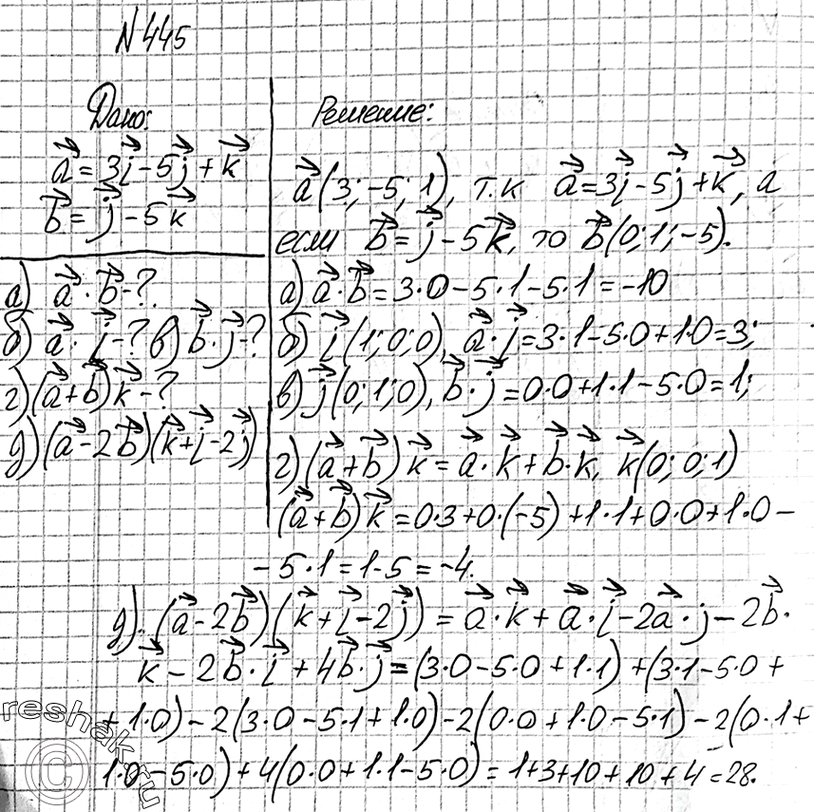 N445
Дано:
a⃗ = 3i⃗ - 5j⃗ + k⃗
b⃗ = j⃗ - 5k⃗
а) a⃗ · b⃗ - ?
б) a⃗ · i⃗ - ? в) b⃗ · j⃗ - ?
г) (a⃗ + b⃗) k⃗ - ?
д) (a⃗ - 2b⃗)(k⃗ + i⃗ - 2j⃗)
Решение:
a⃗ (3; -5; 1), т.к a⃗ = 3i⃗ - 5j⃗ + k⃗, а
если b⃗ = j⃗ - 5k⃗, то b⃗ (0; 1; -5).
а) a⃗ · b⃗ = 3·0 - 5·1 - 5·1 = -10
б) i⃗ (1; 0; 0), a⃗ · i⃗ = 3·1 - 5·0 + 1·0 = 3;
в) j⃗ (0; 1; 0), b⃗ · j⃗ = 0·0 + 1·1 - 5·0 = 1;
г) (a⃗ + b⃗) k⃗ = a⃗ · k⃗ + b⃗ · k⃗, k⃗ (0; 0; 1)
(a⃗ + b⃗) k⃗ = 0·3 + 0·(-5) + 1·1 + 0·0 + 1·0 -
- 5·1 = 1 - 5 = -4.
д) (a⃗ - 2b⃗)(k⃗ + i⃗ - 2j⃗) = a⃗ · k⃗ + a⃗ · i⃗ - 2a⃗ · j - 2b⃗ ·
k⃗ - 2b⃗ · i⃗ + 4b⃗ · j⃗ = (3·0 - 5·0 + 1·1) + (3·1 - 5·0 +
+ 1·0) - 2(3·0 - 5·1 + 1·0) - 2(0·0 + 1·0 - 5·1) - 2(0·1 +
1·0 - 5·0) + 4(0·0 + 1·1 - 5·0) = 1 + 3 + 10 + 10 + 4 = 28.
reshak.ru
©